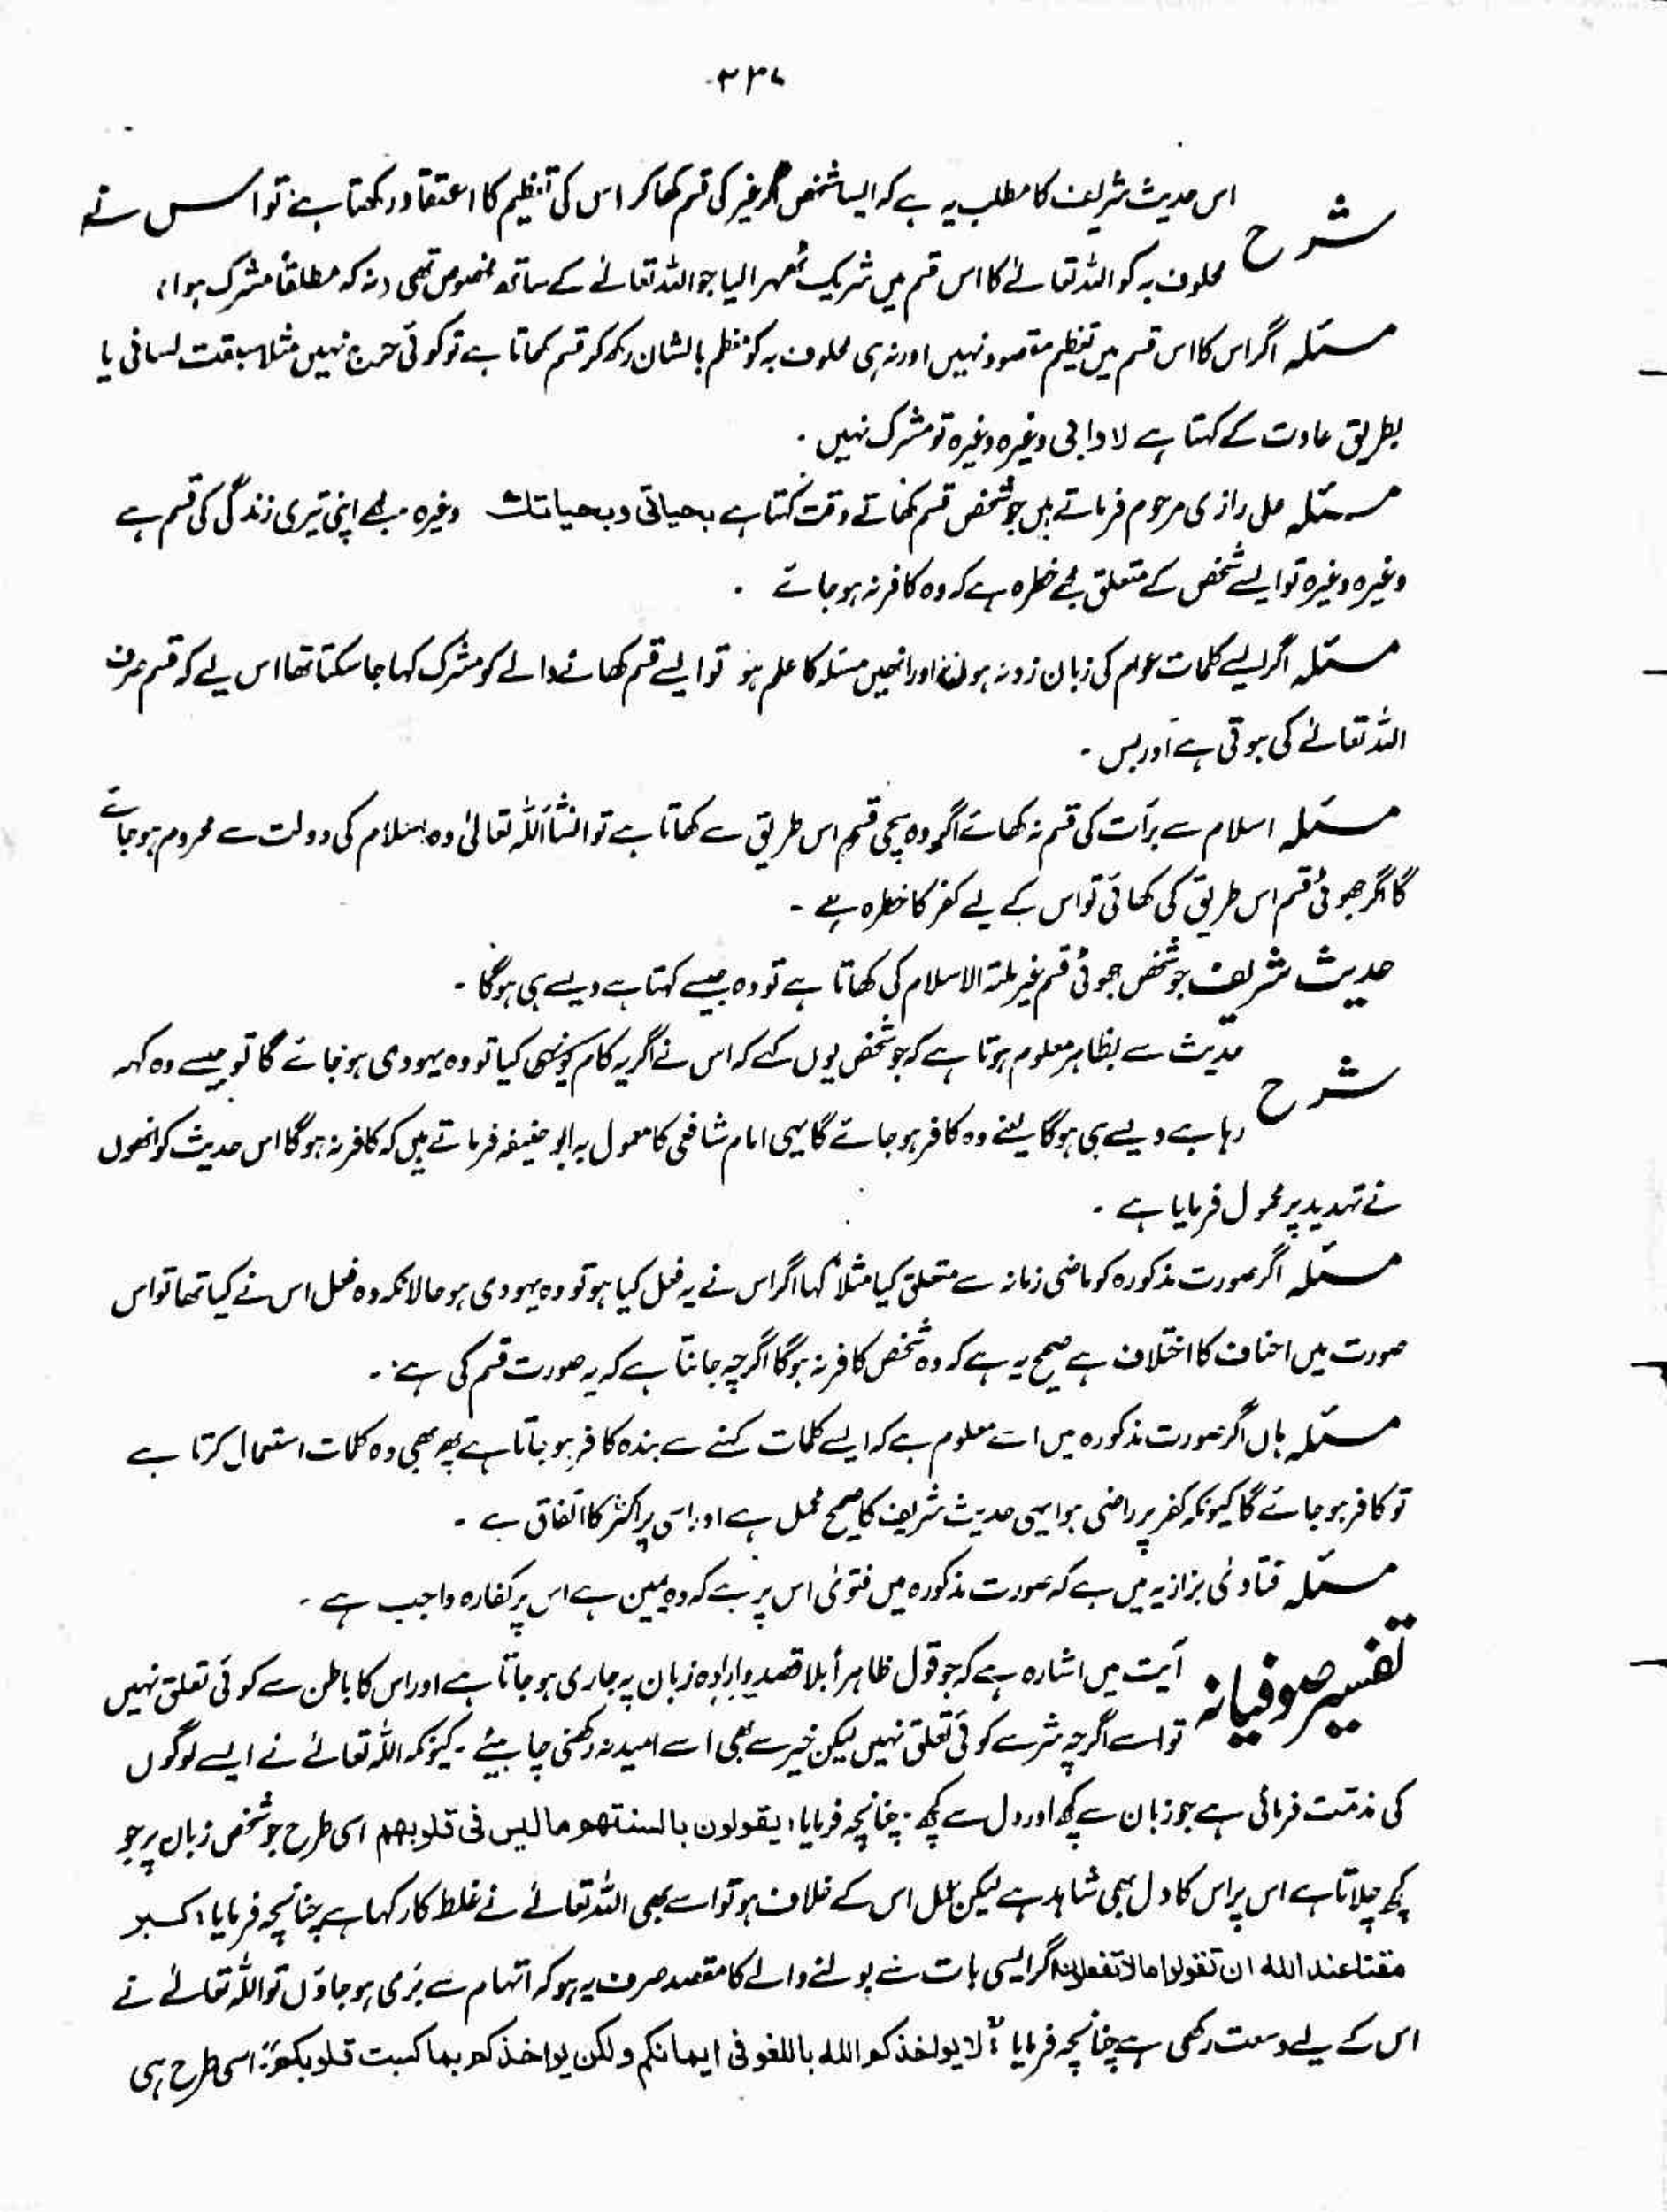 ۳۳۷
شرح اس حدیث شریف کا مطلب یہ ہے کہ ایسا شخص اگر غیر کی قسم کھا کر اس کی تعظیم کا اعتقاد رکھتا ہے تو اس نے
محلوف بہ کو اللہ تعالےٰ کا اس قسم میں شریک ٹھہرا لیا جو اللہ تعالےٰ کے ساتھ مخصوص تھی (نہ کہ مطلقاً مشرک ہوا)
مسئلہ اگر اس کا اس قسم میں تعظیم مقصود نہیں اور نہ ہی محلوف بہ کو معظم بالشان رکھ کر قسم کھاتا ہے تو کوئی حرج نہیں مثلا سبقت لسانی یا
بطریق عادت کے کہتا ہے لا وابی وغیرہ وغیرہ تو مشرک نہیں ۔
مسئلہ علی رازی مرحوم فرماتے ہیں جو شخص قسم کھاتے وقت کہتا ہے بحیاتی وبحیاتک وغیرہ مجھے اپنی تیری زندگی کی قسم ہے
وغیرہ وغیرہ تو ایسے شخص کے متعلق مجھے خطرہ ہے کہ وہ کافر نہ ہو جائے ۔
مسئلہ اگر ایسے کلمات عوام کی زبان زد نہ ہوں اور انھیں مسئلہ کا علم ہو تو ایسے قسم کھانے والے کو مشرک کہا جا سکتا تھا اس لیے کہ قسم صرف
اللہ تعالےٰ کی ہوتی ہے اور بس ۔
مسئلہ اسلام سے برأت کی قسم نہ کھائے اگر وہ سچی قسم اس طریق سے کھاتا ہے تو انشاَاللہ تعالیٰ وہ اسلام کی دولت سے محروم ہو جائے
گا اگر جھوٹی قسم اس طریق کی کھائی تو اس کے لیے کفر کا خطرہ ہے ۔
حدیث شریف جو شخص جھوٹی قسم غیر ملتہ الاسلام کی کھاتا ہے تو وہ جیسے کہتا ہے ویسے ہی ہوگا ۔
شرح حدیث سے بظاہر معلوم ہوتا ہے کہ جو شخص یوں کہے کہ اس نے اگر یہ کام کیا تو وہ یہودی ہو جائے گا تو جیسے وہ کہہ
رہا ہے ویسے ہی ہوگا یعنے وہ کافر ہو جائے گا یہی امام شافعی کا معمول بہ ابو حنیفہ فرماتے ہیں کہ کافر نہ ہوگا اس حدیث کو انھوں
نے تہدید پر محمول فرمایا ہے ۔
مسئلہ اگر صورت مذکورہ کو ماضی زمانہ سے متعلق کیا مثلاً کہا اگر اس نے یہ فعل کیا ہو تو وہ یہودی ہو حالانکہ وہ فعل اس نے کیا تھا تو اس
صورت میں احناف کا اختلاف ہے صحیح یہ ہے کہ وہ شخص کافر نہ ہوگا اگرچہ جانتا ہے کہ یہ صورت قسم کی ہے ۔
مسئلہ ہاں اگر صورت مذکورہ میں اسے معلوم ہے کہ ایسے کلمات کہنے سے بندہ کافر ہو جاتا ہے پھر بھی وہ کلمات استعمال کرتا ہے
تو کافر ہو جائے گا کیونکہ کفر پر راضی ہوا یہی حدیث شریف کا صحیح محمل ہے اور اسی پر اکثر کا اتفاق ہے ۔
مسئلہ فتاویٰ بزازیہ میں ہے کہ صورت مذکورہ میں فتویٰ اس پر ہے کہ وہ یمین ہے اس پر کفارہ واجب ہے ۔
تفسیر صوفیانہ آیت میں اشارہ ہے کہ جو قول ظاہراً بلا قصد و ارادہ زبان پہ جاری ہو جاتا ہے اور اس کا باطن سے کوئی تعلق نہیں
تو اسے اگرچہ شر سے کوئی تعلق نہیں لیکن خیر سے بھی اسے امید نہ رکھنی چاہیئے ۔ کیونکہ اللہ تعالےٰ نے ایسے لوگوں
کی مذمت فرمائی ہے جو زبان سے کچھ اور دل سے کچھ ۔ چنانچہ فرمایا، یقولون بالسنتھم مالیس فی قلوبھم اسی طرح جو شخص زبان پر جو
کچھ چلاتا ہے اس پر اس کا دل بھی شاہد ہے لیکن عمل اس کے خلاف ہو تو اسے بھی اللہ تعالےٰ نے غلط کار کہا ہے چنانچہ فرمایا، کبر
مقتا عند اللہ ان تقولوا ما لا تفعلون اگر ایسی بات سے بولنے والے کا مقصد صرف یہ ہو کہ اتہام سے بری ہو جاؤں تو اللہ تعالےٰ نے
اس کے لیے وسعت رکھی ہے چنانچہ فرمایا "لا یواخذکم اللہ باللغو فی ایمانکم ولکن یواخذکم بما کسبت قلوبکم" اسی طرح ہی